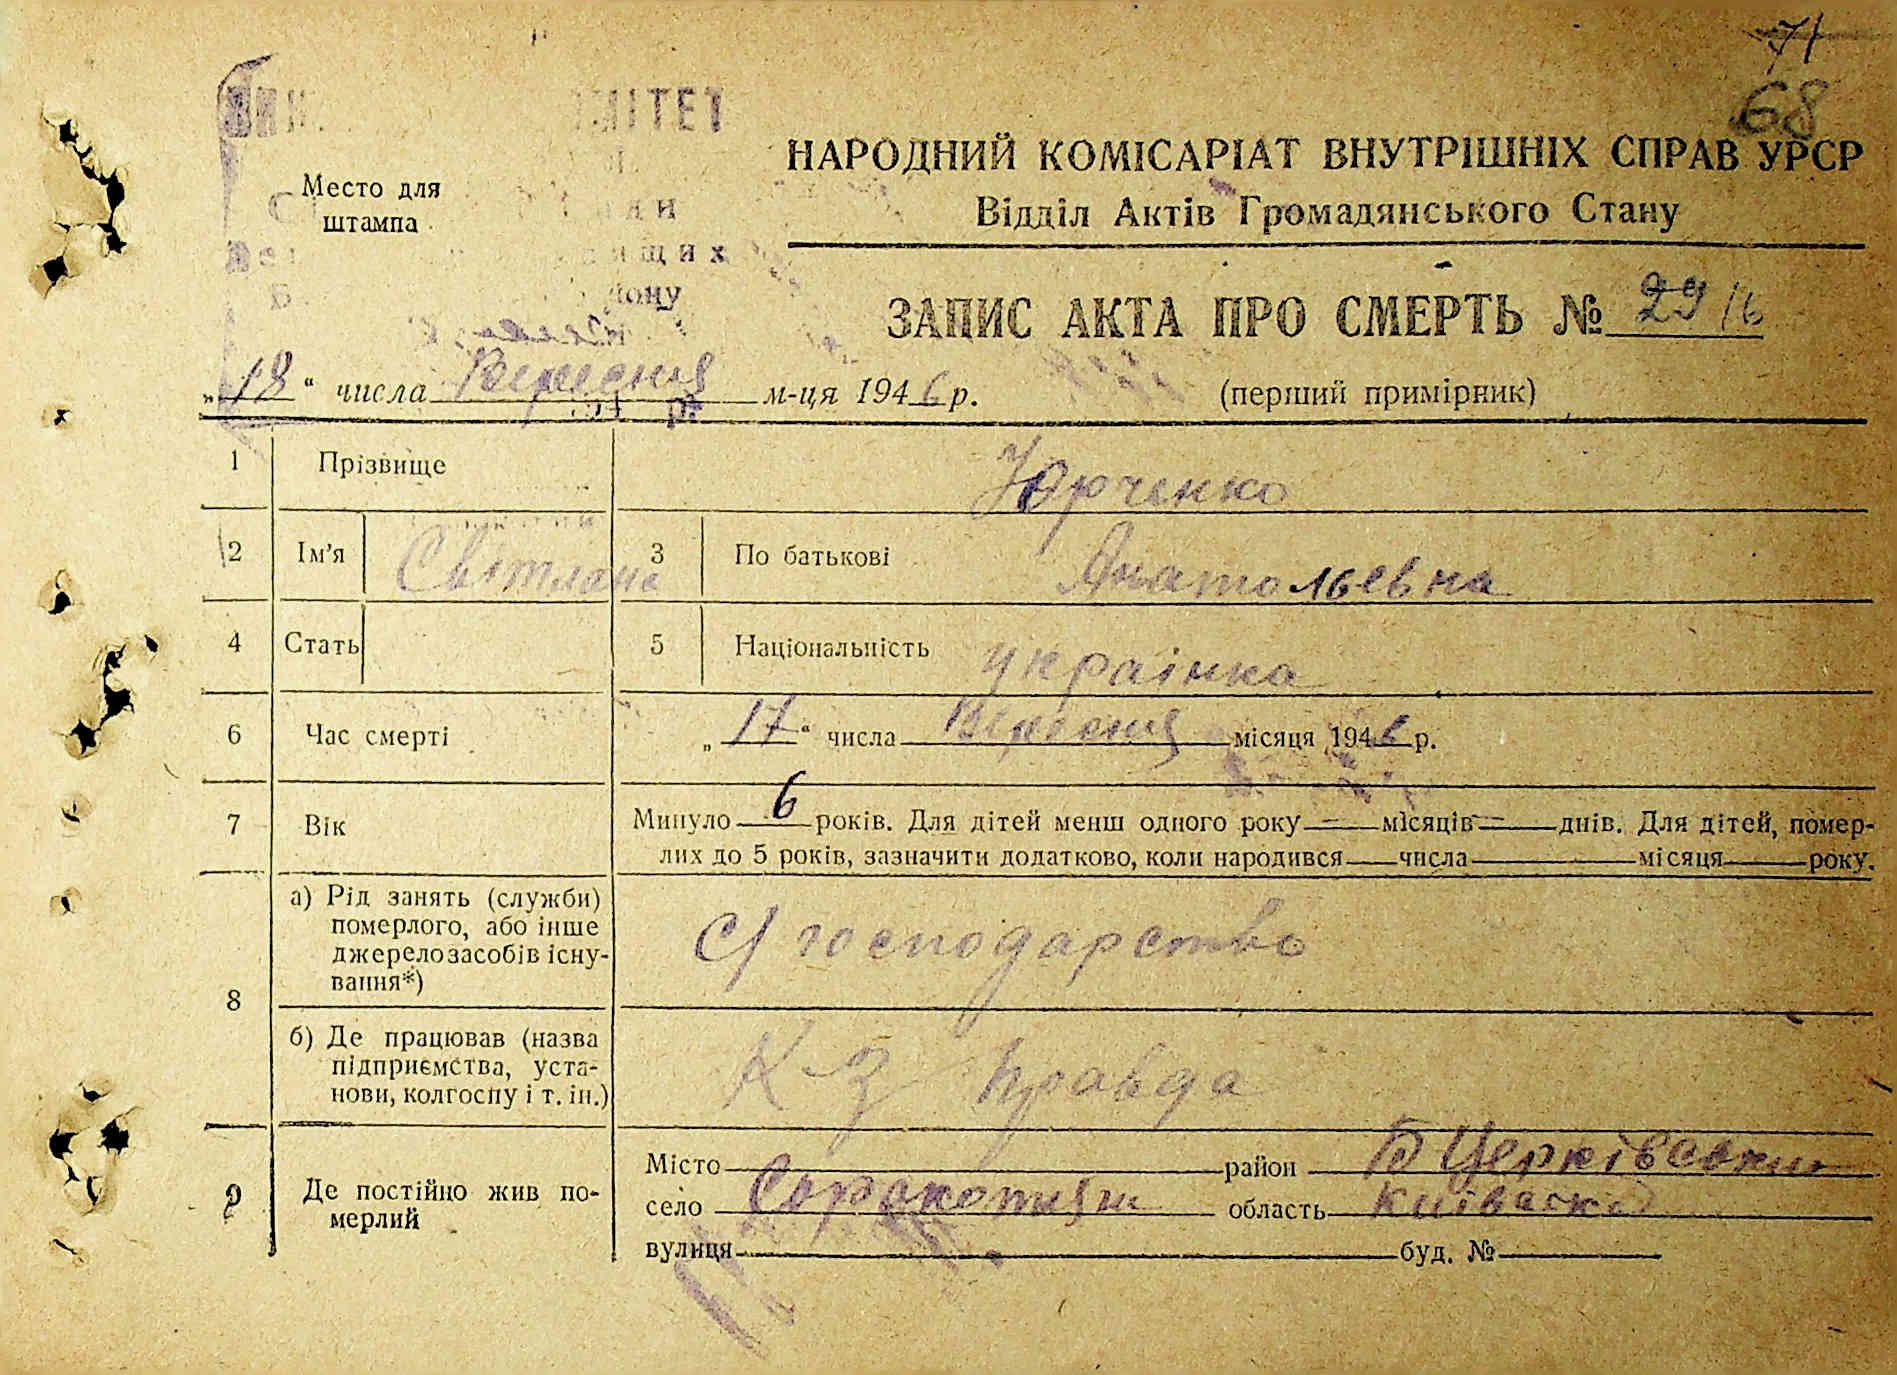 71
68
ІТЕТ
Место для
штампа
НАРОДНИЙ КОМІСАРІАТ ВНУТРІШНІХ СПРАВ УРСР
Відділ Актів Громадянського Стану
ЗАПИС АКТА ПРО СМЕРТЬ № 29/6
„18“ числа Вересня м-ця 1946 р. (перший примірник)
1 Прізвище Юрченко
2 Ім’я Світлана 3 По батькові Анатольевна
4 Стать 5 Національність українка
6 Час смерті „17“ числа Вересня місяця 1946 р.
7 Вік Минуло 6 років. Для дітей менш одного року — місяців — днів. Для дітей, помер-
лих до 5 років, зазначити додатково, коли народився числа місяця року.
8 а) Рід занять (служби)
померлого, або інше
джерело засобів існу-
вання*)
С/господарство
б) Де працював (назва
підприємства, уста-
нови, колгоспу і т. ін.)
К-з Правда
9 Де постійно жив по-
мерлий
Місто район Б Церківський
село Сорокотяги область Київська
вулиця буд. №